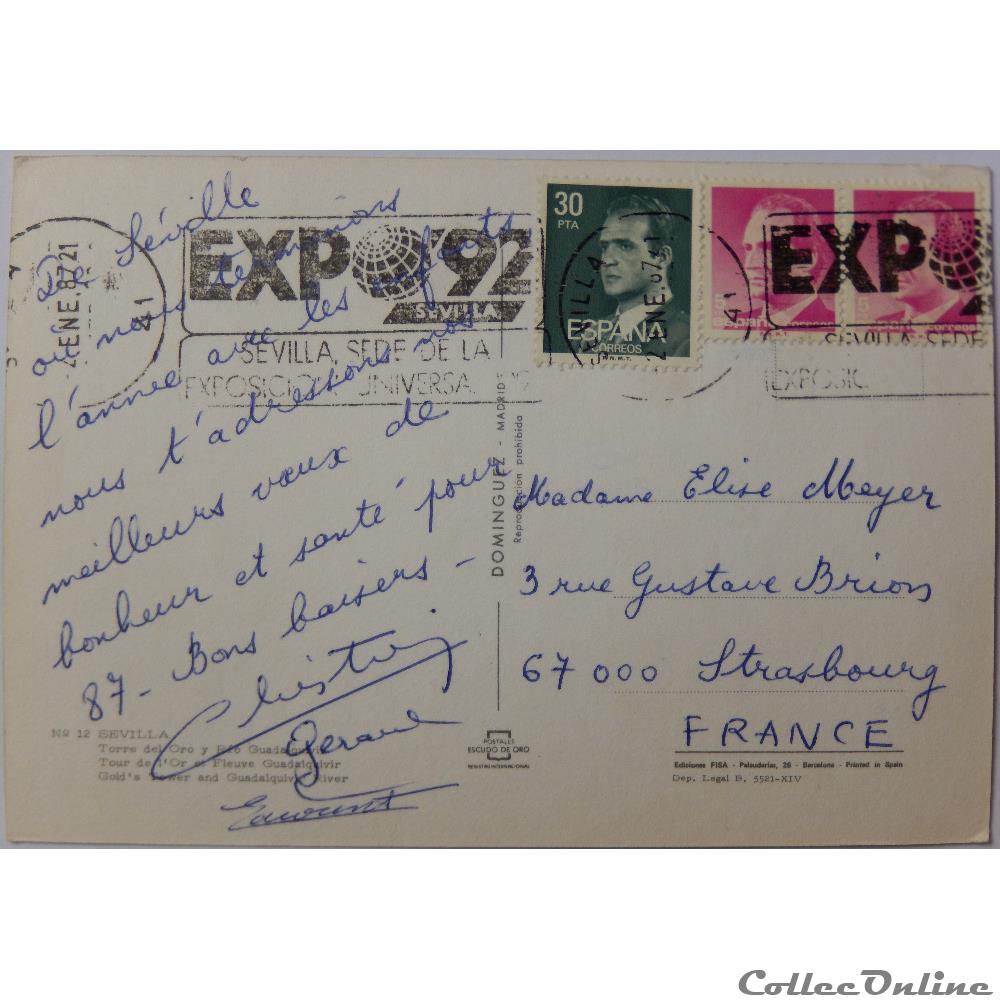 De Séville
où nous terminons
l'année avec les enfants
nous t'adressons nos
meilleurs vœux de
bonheur et santé pour
87 - Bons baisers -
Gérard
Nº 12 SEVILLA
Torre del Oro y Río Guadalquivir
Tour de l'Or et Fleuve Guadalquivir
Gold's Tower and Guadalquivir River
2 ENE. 87 21
41
EXPO'92
SEVILLA
SEVILLA, SEDE DE LA
EXPOSICION UNIVERSAL
30
PTA
ESPAÑA
CORREOS
F.N.M.T.
SEVILLA
2 ENE. 87 21
41
5
España correos
5
correos
EXPO
SEVILLA, SEDE
EXPOSIC
DOMINGUEZ - MADRID
Reproducción prohibida
POSTALES
ESCUDO DE ORO
REGISTRO INTERNACIONAL
Madame Elise Meyer
3 rue Gustave Brion
67 000 Strasbourg
FRANCE
Ediciones FISA - Palaudarias, 26 - Barcelona - Printed in Spain
Dep. Legal B. 5521-XIV
CollecOnline